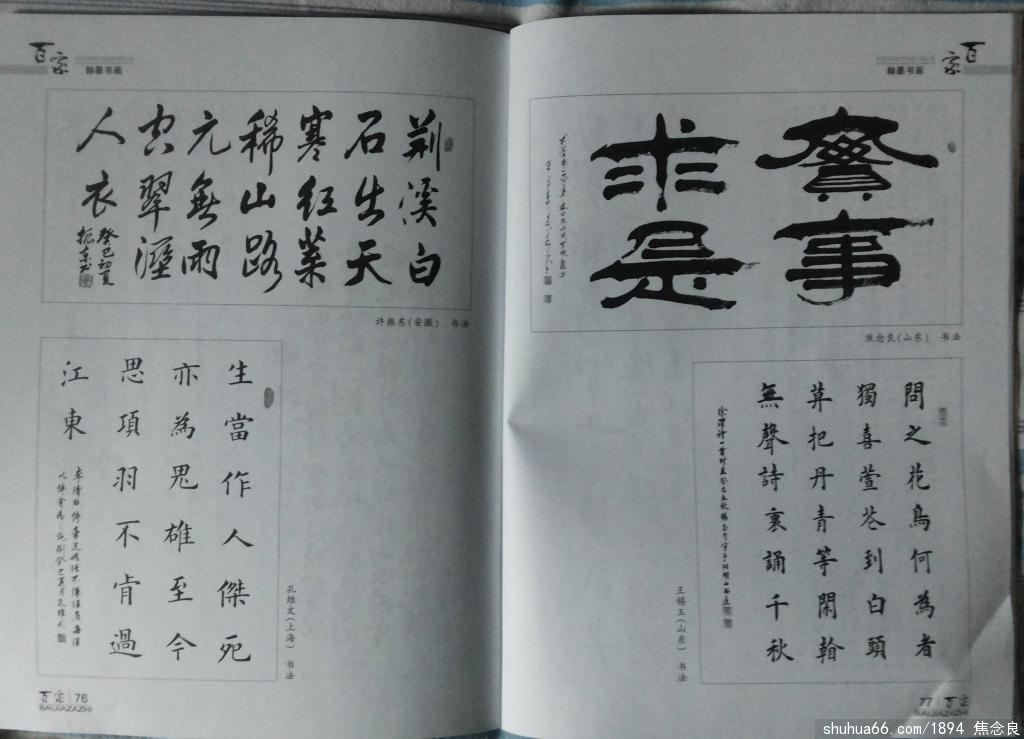 百家
翰墨书画
荆溪白
石出天
寒红葉
稀山路
元無雨
空翠溼
人衣
癸巳初夏
振東书
许振东(安徽) 书法
生當作人傑死
亦為鬼雄至今
思項羽不肯過
江東
孔维文(上海) 书法
百家 76
BAIJIAZAZHI
百家
翰墨书画
實事
求是
焦念良(山东) 书法
問之花鳥何為者
獨喜萱花到白頭
莫把丹青等閑看
無聲詩裏誦千秋
王锡玉(山东) 书法
77 百家
BAIJIAZAZHI
shuhua66.com/1894 焦念良